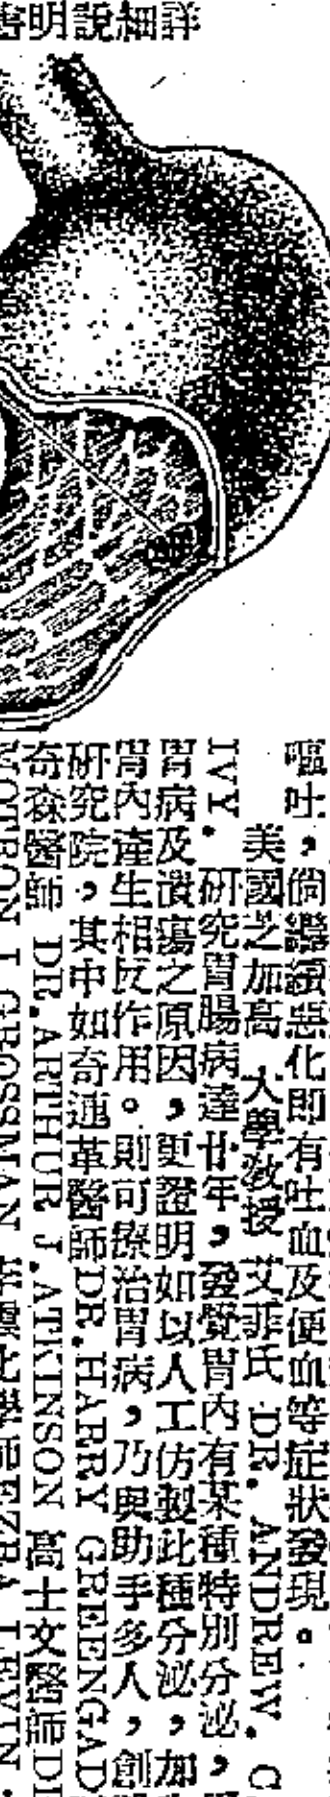 詳細說明書
嘔吐，倘繼續惡化即有吐血及便血等症狀發現。
美國芝加高 大學教授 艾菲氏 DR. ANDREW. C
IVY. 研究胃腸病達廿年，發覺胃內有某種特別分泌，
胃病及潰瘍之原因，更證明如以人工仿製此種分泌，加
胃內產生相反作用。則可療治胃病，乃與助手多人，創
研究院，其中如奇連革醫師DR. HARRY GREENGAD
奇森醫師 DR. ARTHUR J. ATKINSON 高士文醫師D
MOTRON I GROSSMAN 化學師EZRA LEVIN.